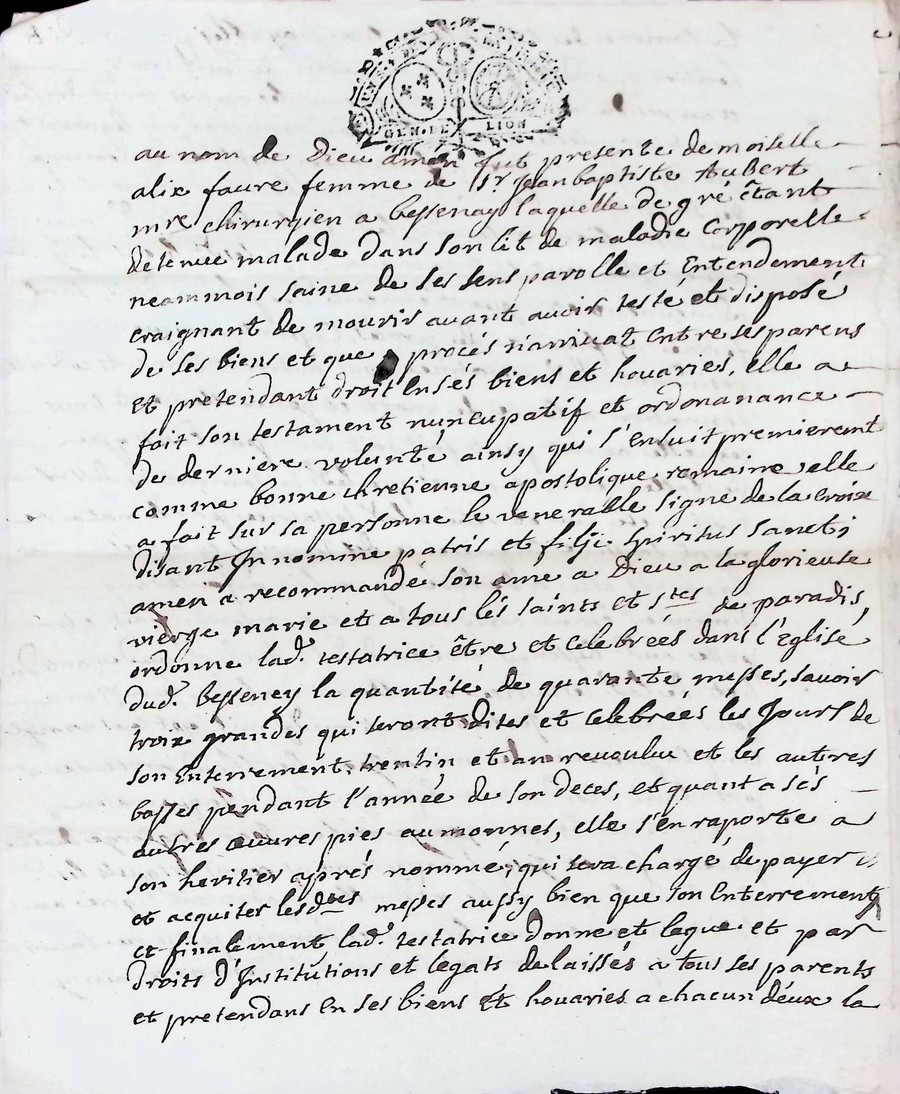 GEN. DE LION
au nom de Dieu amen fut presente demoiselle
alix faure femme de Sr Jean baptiste Aubert
mre chirurgien a bessenay laquelle de gré êtant
detenue malade dans son lit de maladie corporelle
neammois saine de ses sens parolle et Entendement
craignant de mourir avant avoir testé et disposé
de ses biens et que procés n'arrivat Entre ses parens
et pretendant droit En sés biens et hoiaries, elle a
fait son testament nuncupatif et ordonanance
de derniere volunté ainsy qui s'Ensuit premierement
comme bonne chretienne apostolique romaine elle
a fait sur sa personne le venerable signe de la croix
disant In nomine patris et filji spiritus sancti
amen a recommandé son ame a Dieu a la glorieuse
vierge marie et a tous lés saints et stes de paradis,
ordonne lad. testatrice être et Celebrées dans l'Eglise
dud. bessenay la quantité de quarante messes, savoir
troix grandes qui seront dites et Celebrées les Jours de
son Enterrement, trentin et an revoulu et les autres
basses pendant l'année de son deces, et quant a sés
autres œuvres pies aumonnes, elle s'En raporte a
son heritier aprés nommé, qui sera chargé de payer
et acquiter lesdtes messes aussy bien que son Enterrement
et finalement lad. testatrice donne et legue et par
droits d'Institutions et legats delaissés a tous ses parents
et pretendans En ses biens Et hoiaries a chacun déux la